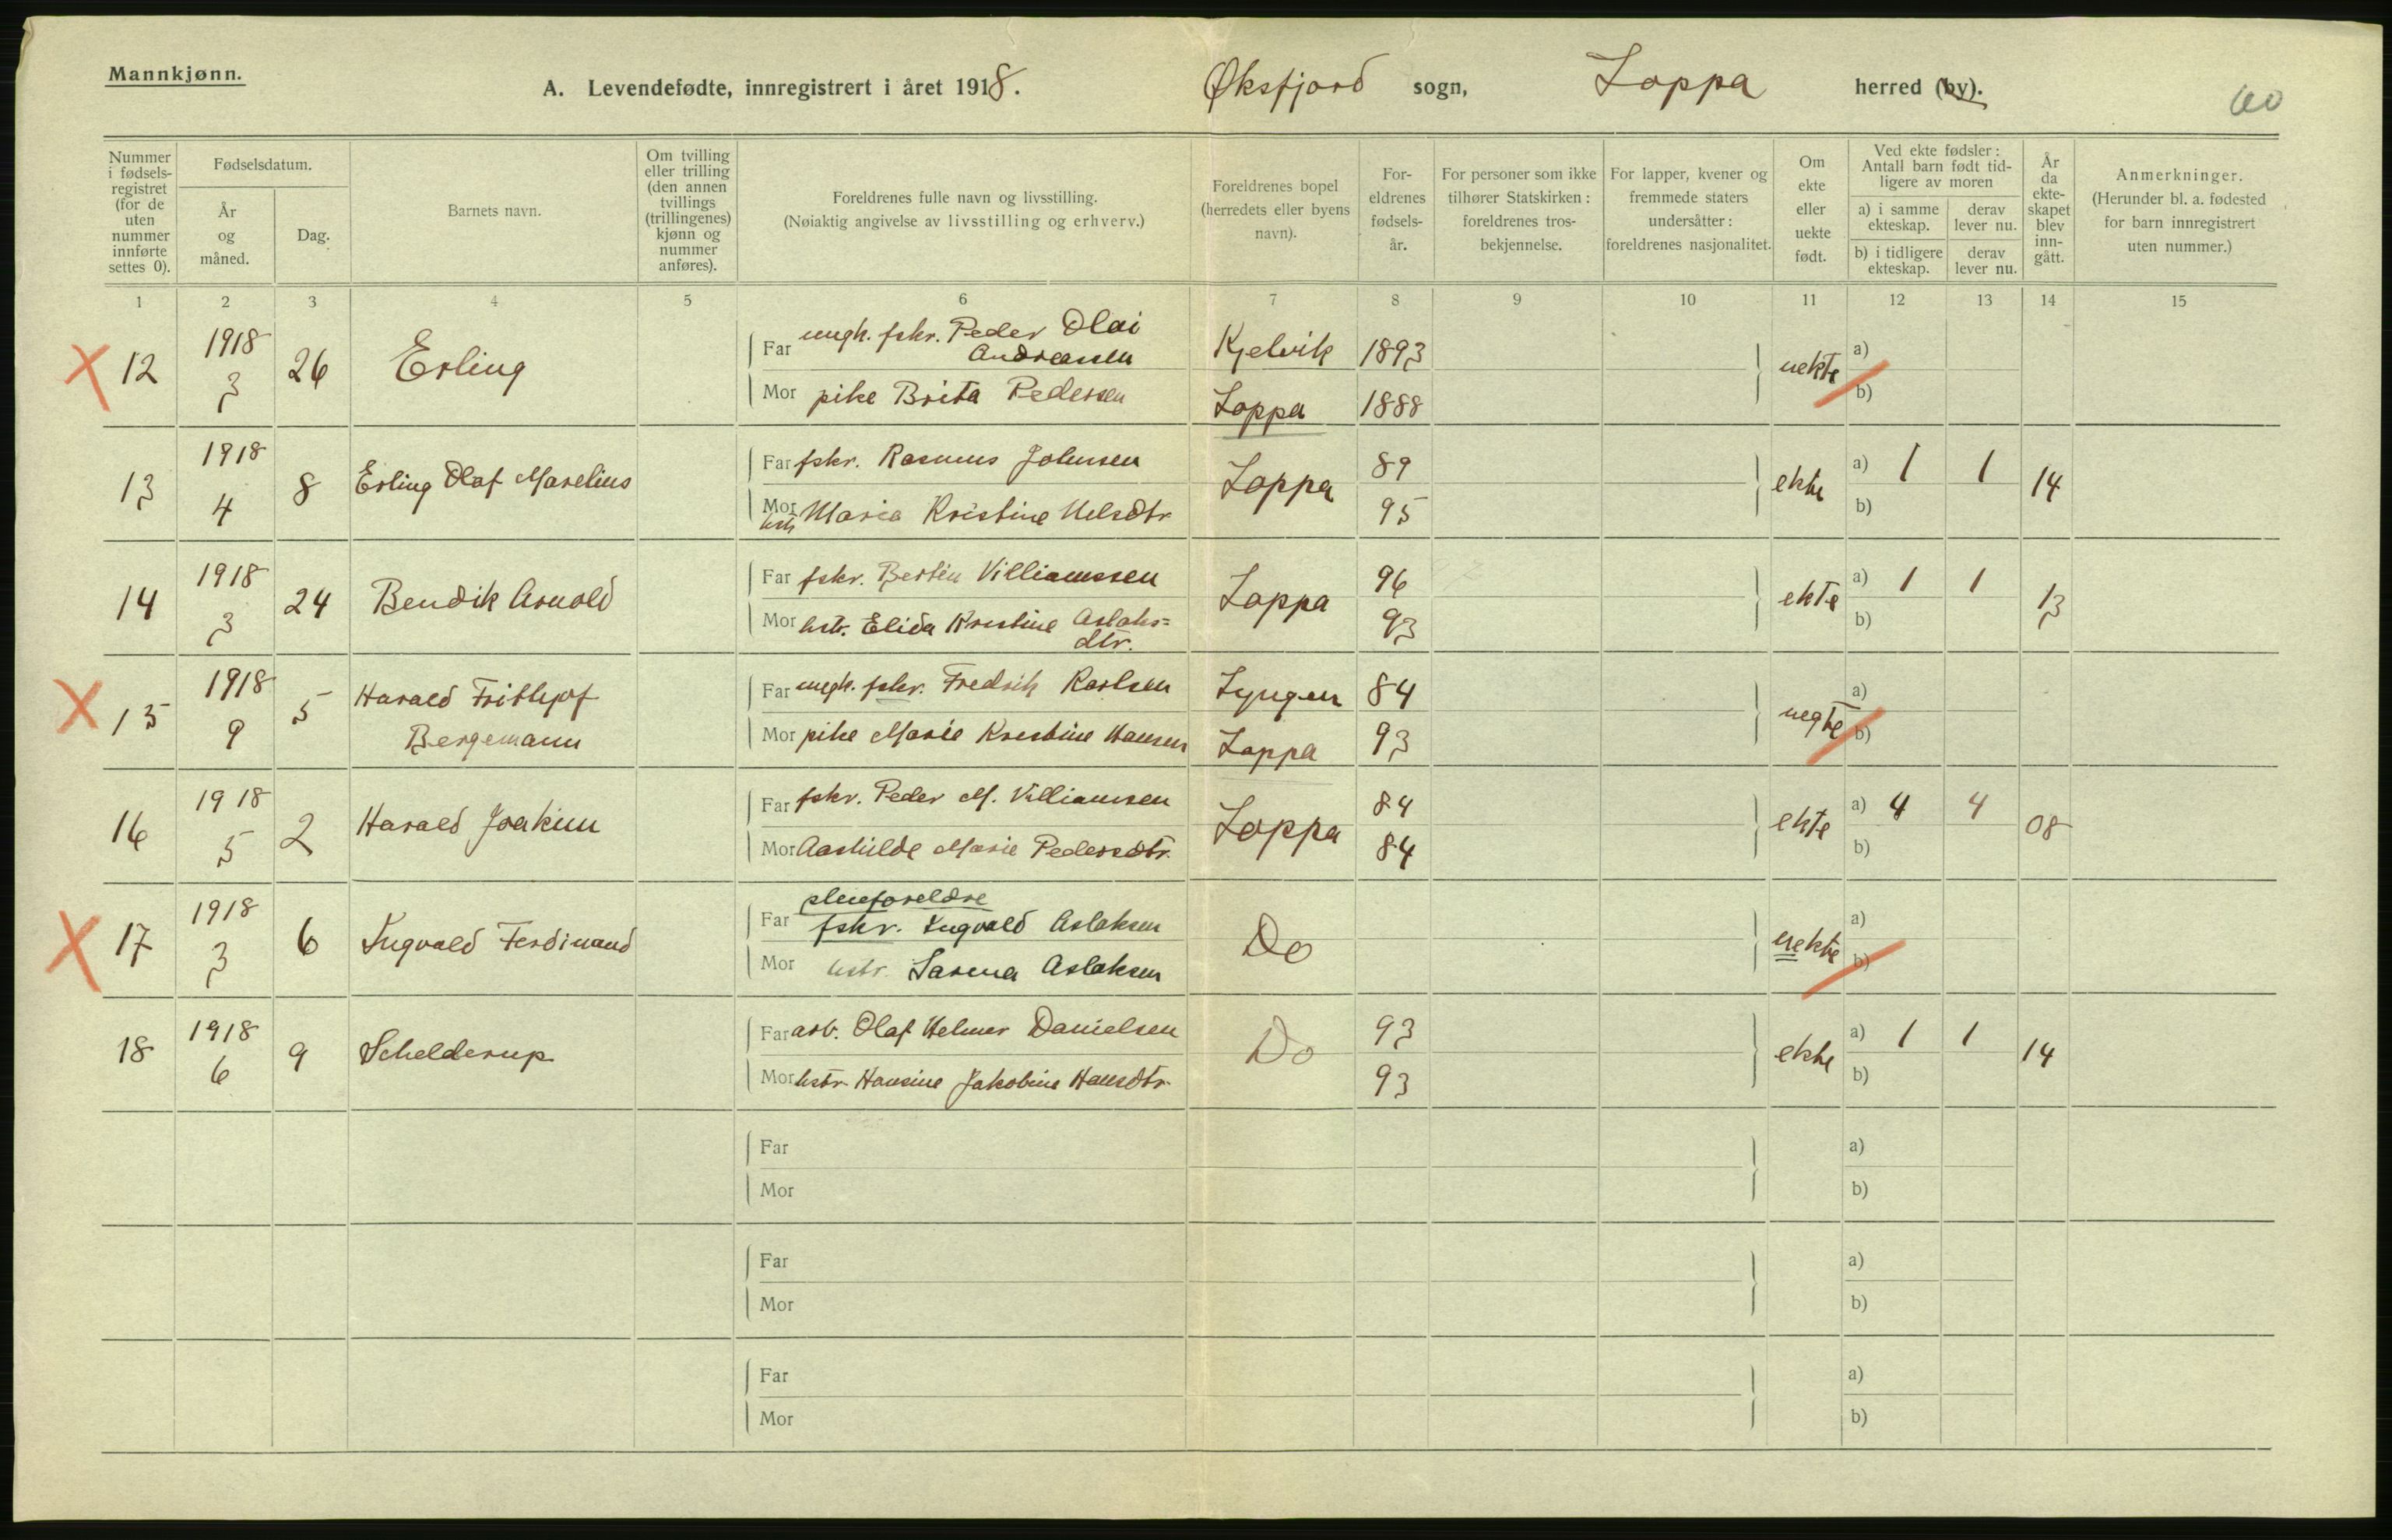 Mannkjønn.
A. Levendefødte, innregistrert i året 1918. Øksfjord sogn, Loppa herred (by).
60
Nummer i fødsels-registret (for de uten nummer innførte settes 0).
Fødselsdatum.
År og måned.
Dag.
Barnets navn.
Om tvilling eller trilling (den annen tvillings (trillingenes) kjønn og nummer anføres).
Foreldrenes fulle navn og livsstilling.
(Nøiaktig angivelse av livsstilling og erhverv.)
Foreldrenes bopel (herredets eller byens navn).
For-eldrenes fødsels-år.
For personer som ikke tilhører Statskirken: foreldrenes tros-bekjennelse.
For lapper, kvener og fremmede staters undersåtter: foreldrenes nasjonalitet.
Om ekte eller uekte født.
Ved ekte fødsler: Antall barn født tid-ligere av moren
a) i samme ekteskap.
derav lever nu.
b) i tidligere ekteskap.
derav lever nu.
År da ekte-skapet blev inn-gått.
Anmerkninger.
(Herunder bl. a. fødested for barn innregistrert uten nummer.)
1 2 3 4 5 6 7 8 9 10 11 12 13 14 15
X 12 1918 3 26 Erling
Far ungk. fskr. Peder Olai Andreassen Kjelvik 1893
Mor pike Brita Pedersen Loppa 1888
uekte a) b)
13 1918 4 8 Erling Olaf Marelius
Far fskr. Rasmus Johnsen Loppa 89
Mor hstr Maria Kristine Nelsdtr 95
ekte a) 1 1 14
b)
14 1918 3 24 Bendik Arnold
Far fskr. Bertin Villiamssen Loppa 96
Mor hstr. Elida Kristine Aslaks=dtr. 93
ekte a) 1 1 13
b)
X 15 1918 9 5 Harald Frithjof Bergemann
Far ungk. fskr. Fredrik Karlsen Lyngen 84
Mor pike Marie Kristine Hansen Loppa 93
uegte a) b)
16 1918 5 2 Harald Joakim
Far fskr. Peder M. Villiamsen Loppa 84
Mor Aashilde Marie Pedersdtr. 84
ekte a) 4 4 08
b)
X 17 1918 3 6 Ingvald Ferdinand
pleieforeldre
Far fskr. Ingvald Aslaksen Do
Mor hstr. Sarma Aslaksen
uekte a) b)
18 1918 6 9 Schelderup
Far arb. Olaf Helmer Danielsen Do 93
Mor hstr. Hansine Jakobine Hansdtr. 93
ekte a) 1 1 14
b)
Far a)
Mor b)
Far a)
Mor b)
Far a)
Mor b)